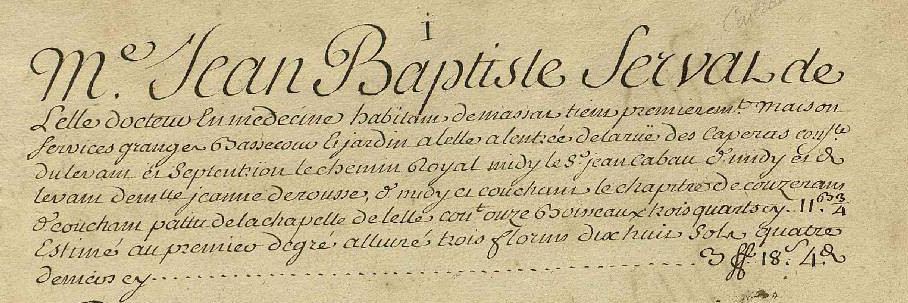 1
Me. Jean Baptiste Serval de
Lelle docteur En medecine habitant de massat tient premieremt. maison
services granges Bassecour Et jardin a lelle a lentrée de la rüe des Caperas confte
du levant et Septentrion le chemin Royal midy le Sr. jean Cabau d'midy et de
levant demlle jeanne de rousse, d'midy et couchant le chapitre de couzerans
d'couchant pattu de la chapelle de lelle cont. onze Boiseaux trois quarts cy .. 11 bx 3/4
Estimé au premier degré allivré trois florins dix huit Sols quatre
deniers cy .......... 3 ff 18 s. 4 d